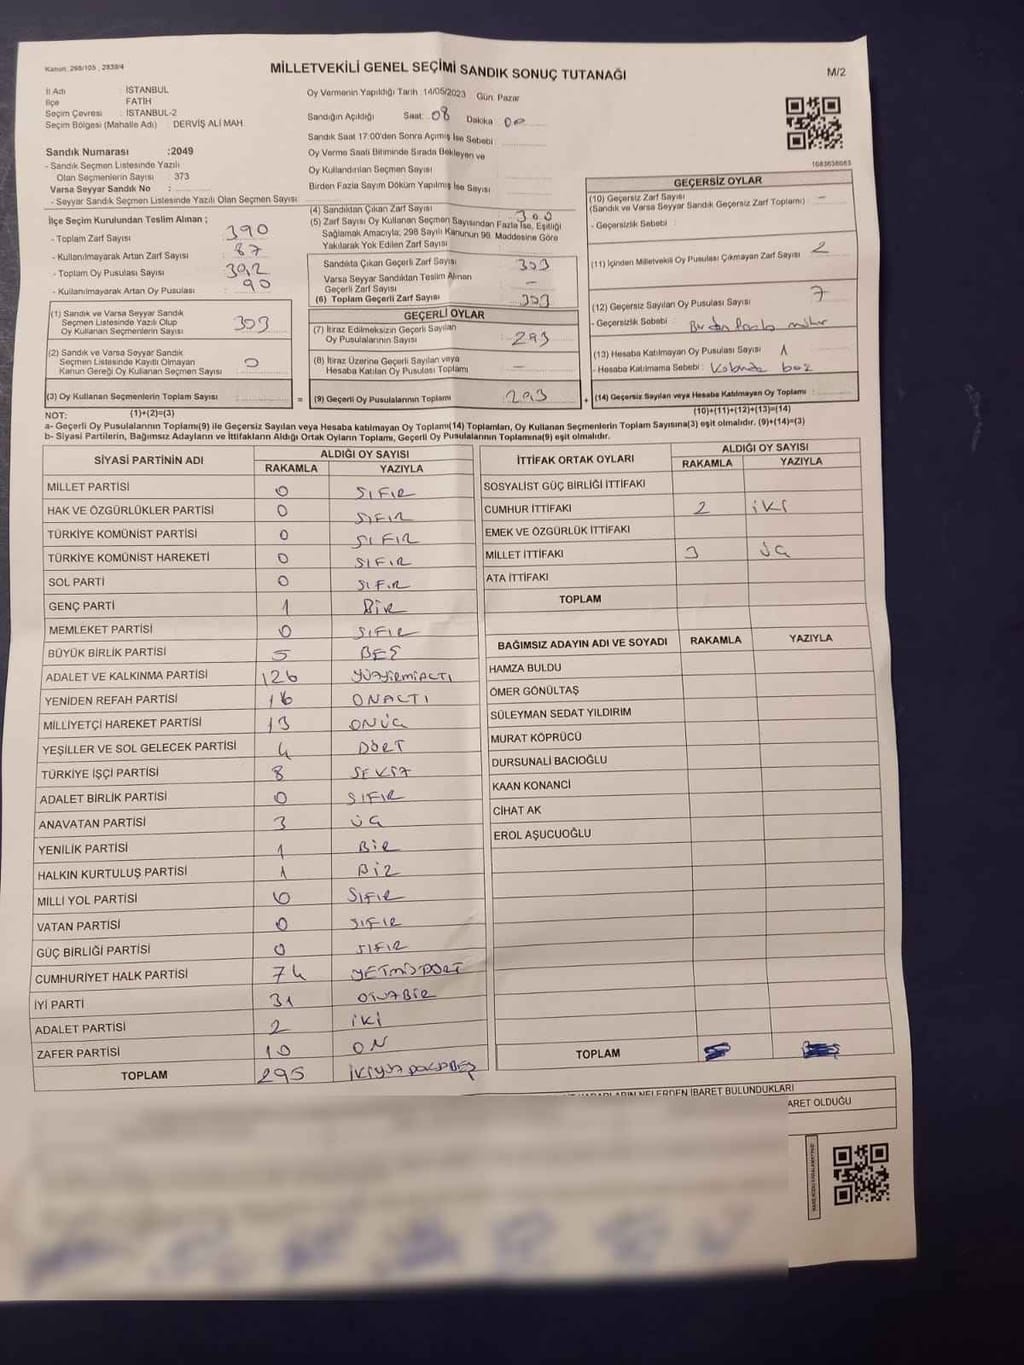 Kanun: 298/105 , 2839/4
MİLLETVEKİLİ GENEL SEÇİMİ SANDIK SONUÇ TUTANAĞI
M/2
İl Adı : İSTANBUL
İlçe : FATİH
Seçim Çevresi : İSTANBUL-2
Seçim Bölgesi (Mahalle Adı) : DERVİŞ ALİ MAH.
Sandık Numarası :2049
- Sandık Seçmen Listesinde Yazılı
Olan Seçmenlerin Sayısı : 373
Varsa Seyyar Sandık No :
- Seyyar Sandık Seçmen Listesinde Yazılı Olan Seçmen Sayısı
Oy Vermenin Yapıldığı Tarih :14/05/2023 Gün Pazar
Sandığın Açıldığı Saat: 08 Dakika 00
Sandık Saat 17:00'den Sonra Açımış İse Sebebi :
Oy Verme Saati Bitiminde Sırada Bekleyen ve
Oy Kullandırılan Seçmen Sayısı
Birden Fazla Sayım Döküm Yapılmış İse Sayısı
1083638083
İlçe Seçim Kurulundan Teslim Alınan ;
- Toplam Zarf Sayısı 390
- Kullanılmayarak Artan Zarf Sayısı 87
- Toplam Oy Pusulası Sayısı
- Kullanılmayarak Artan Oy Pusulası 90
(1) Sandık ve Varsa Seyyar Sandık
Seçmen Listesinde Yazılı Olup
Oy Kullanan Seçmenlerin Sayısı 303
(2) Sandık ve Varsa Seyyar Sandık
Seçmen Listesinde Kayıtlı Olmayan
Kanun Gereği Oy Kullanan Seçmen Sayısı 0
(3) Oy Kullanan Seçmenlerin Toplam Sayısı
=
(4) Sandıktan Çıkan Zarf Sayısı
(5) Zarf Sayısı Oy Kullanan Seçmen Sayısından Fazla İse, Eşitliği
Sağlamak Amacıyla; 298 Sayılı Kanunun 98. Maddesine Göre
Yakılarak Yok Edilen Zarf Sayısı
Sandıkta Çıkan Geçerli Zarf Sayısı 303
Varsa Seyyar Sandıktan Teslim Alınan
Geçerli Zarf Sayısı -
(6) Toplam Geçerli Zarf Sayısı 303
GEÇERLİ OYLAR
(7) İtiraz Edilmeksizin Geçerli Sayılan
Oy Pusulalarının Sayısı 293
(8) İtiraz Üzerine Geçerli Sayılan veya
Hesaba Katılan Oy Pusulası Toplamı -
(9) Geçerli Oy Pusulalarının Toplamı 293
+
GEÇERSİZ OYLAR
(10) Geçersiz Zarf Sayısı -
(Sandık ve Varsa Seyyar Sandık Geçersiz Zarf Toplamı)
- Geçersizlik Sebebi :
(11) İçinden Milletvekili Oy Pusulası Çıkmayan Zarf Sayısı 2
(12) Geçersiz Sayılan Oy Pusulası Sayısı 7
- Geçersizlik Sebebi : Birden fazla mühür
(13) Hesaba Katılmayan Oy Pusulası Sayısı 1
- Hesaba Katılmama Sebebi :
(14) Geçersiz Sayılan veya Hesaba Katılmayan Oy Toplamı :
NOT: (1)+(2)=(3)
(10)+(11)+(12)+(13)=(14)
a- Geçerli Oy Pusulalarının Toplamı(9) ile Geçersiz Sayılan veya Hesaba katılmayan Oy Toplamı(14) Toplamları, Oy Kullanan Seçmenlerin Toplam Sayısına(3) eşit olmalıdır. (9)+(14)=(3)
b- Siyasi Partilerin, Bağımsız Adayların ve İttifakların Aldığı Ortak Oyların Toplamı, Geçerli Oy Pusulalarının Toplamına(9) eşit olmalıdır.
SİYASİ PARTİNİN ADI ALDIĞI OY SAYISI
RAKAMLA YAZIYLA
MİLLET PARTİSİ 0 SIFIR
HAK VE ÖZGÜRLÜKLER PARTİSİ 0 SIFIR
TÜRKİYE KOMÜNİST PARTİSİ 0 SIFIR
TÜRKİYE KOMÜNİST HAREKETİ 0 SIFIR
SOL PARTİ 0 SIFIR
GENÇ PARTİ 1 BİR
MEMLEKET PARTİSİ 0 SIFIR
BÜYÜK BİRLİK PARTİSİ 5 BEŞ
ADALET VE KALKINMA PARTİSİ 126 YÜZYİRMİALTI
YENİDEN REFAH PARTİSİ 16 ONALTI
MİLLİYETÇİ HAREKET PARTİSİ 13 ONÜÇ
YEŞİLLER VE SOL GELECEK PARTİSİ 4 DÖRT
TÜRKİYE İŞÇİ PARTİSİ 8 SEKİZ
ADALET BİRLİK PARTİSİ 0 SIFIR
ANAVATAN PARTİSİ 3 ÜÇ
YENİLİK PARTİSİ 1 BİR
HALKIN KURTULUŞ PARTİSİ 1 BİR
MİLLİ YOL PARTİSİ 0 SIFIR
VATAN PARTİSİ 0 SIFIR
GÜÇ BİRLİĞİ PARTİSİ 0 SIFIR
CUMHURİYET HALK PARTİSİ 74 YETMİŞDÖRT
İYİ PARTİ 31 OTUZBİR
ADALET PARTİSİ 2 İKİ
ZAFER PARTİSİ 10 ON
TOPLAM 295 İKİYÜZDOKSANBEŞ
İTTİFAK ORTAK OYLARI ALDIĞI OY SAYISI
RAKAMLA YAZIYLA
SOSYALİST GÜÇ BİRLİĞİ İTTİFAKI
CUMHUR İTTİFAKI 2 İKİ
EMEK VE ÖZGÜRLÜK İTTİFAKI
MİLLET İTTİFAKI 3 ÜÇ
ATA İTTİFAKI
TOPLAM
BAĞIMSIZ ADAYIN ADI VE SOYADI RAKAMLA YAZIYLA
HAMZA BULDU
ÖMER GÖNÜLTAŞ
SÜLEYMAN SEDAT YILDIRIM
MURAT KÖPRÜCÜ
DURSUNALİ BACIOĞLU
KAAN KONANCİ
CİHAT AK
EROL AŞUCUOĞLU
TOPLAM
NELERDEN İBARET BULUNDUKLARI
ARET OLDUĞU